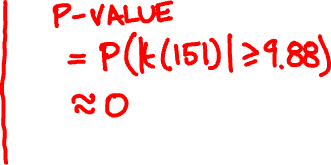 P-VALUE
= P(|t(151)| ≥ 9.88)
≈ 0